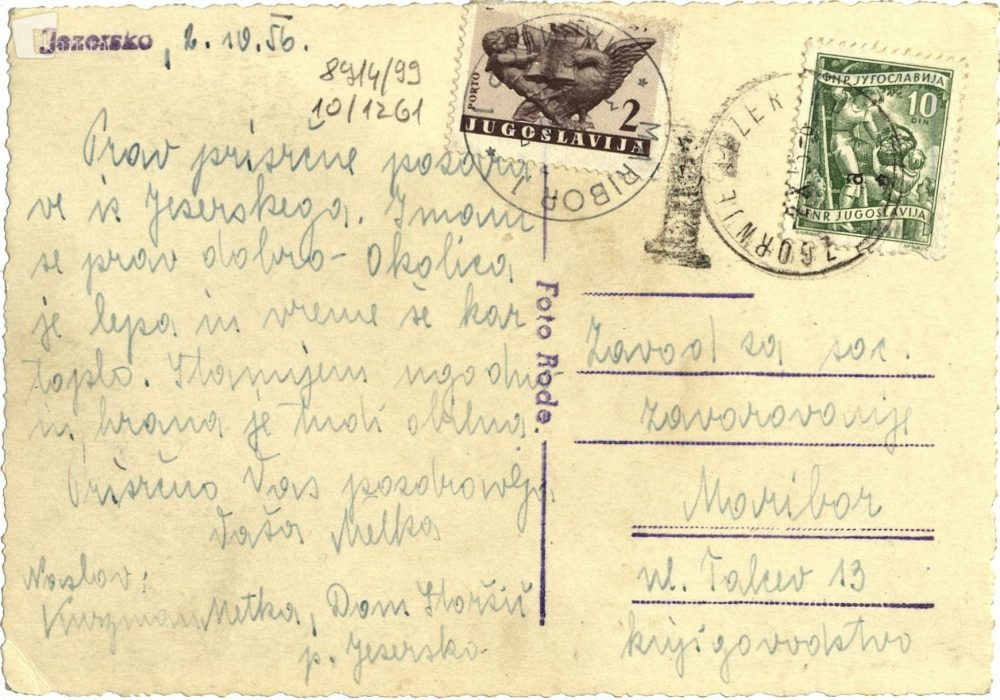 Jezersko, 2.10.56.
8914/99
10/1261
Prav prisrčne pozdra
ve iz Jezerskega. Imam
se prav dobro - Okolica
je lepa in vreme še kar
toplo. Stanujem ugodno
in hrana je tudi obilna.
Prisrčno Vas pozdravlja
Vaša Metka
Naslov:
Metka, Dom Storžič
p. Jezersko
Foto Rode.
PORTO
2
JUGOSLAVIJA
MARIBOR 1
T
ФНР ЈУГОСЛАВИЈА
10
DIN
FNR JUGOSLAVIJA
ZGORNJE JEZER
Zavod za soc.
zavarovanje
Maribor
ul. Talcev 13
knjigovodstvo